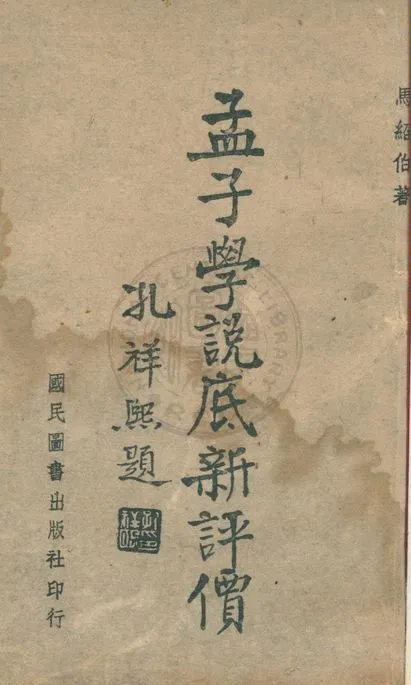 馬紹伯著
孟子學說底新評價
孔祥熙題
國民圖書出版社印行